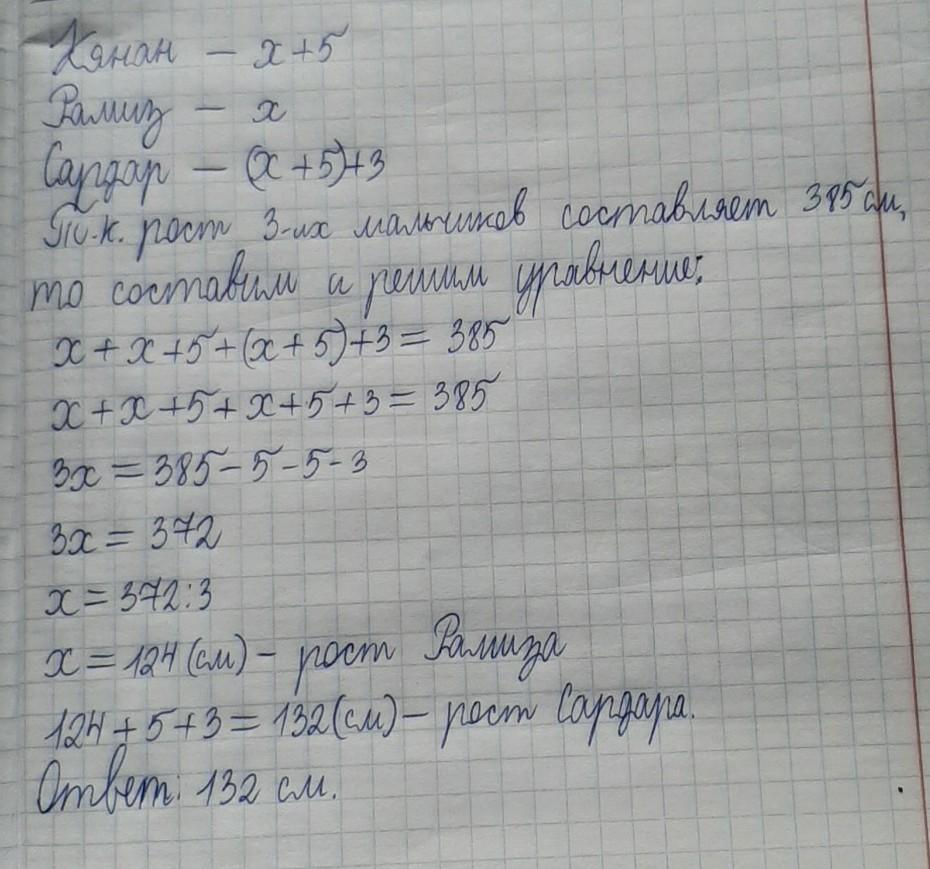 Кянан – x+5
Рамиз – x
Сардар – (x+5)+3
Т.к. рост 3-их мальчиков составляет 385 см,
то составим и решим уравнение:
x+x+5+(x+5)+3=385
x+x+5+x+5+3=385
3x=385-5-5-3
3x=372
x=372:3
x=124(см) – рост Рамиза
124+5+3=132(см) – рост Сардара.
Ответ: 132 см.